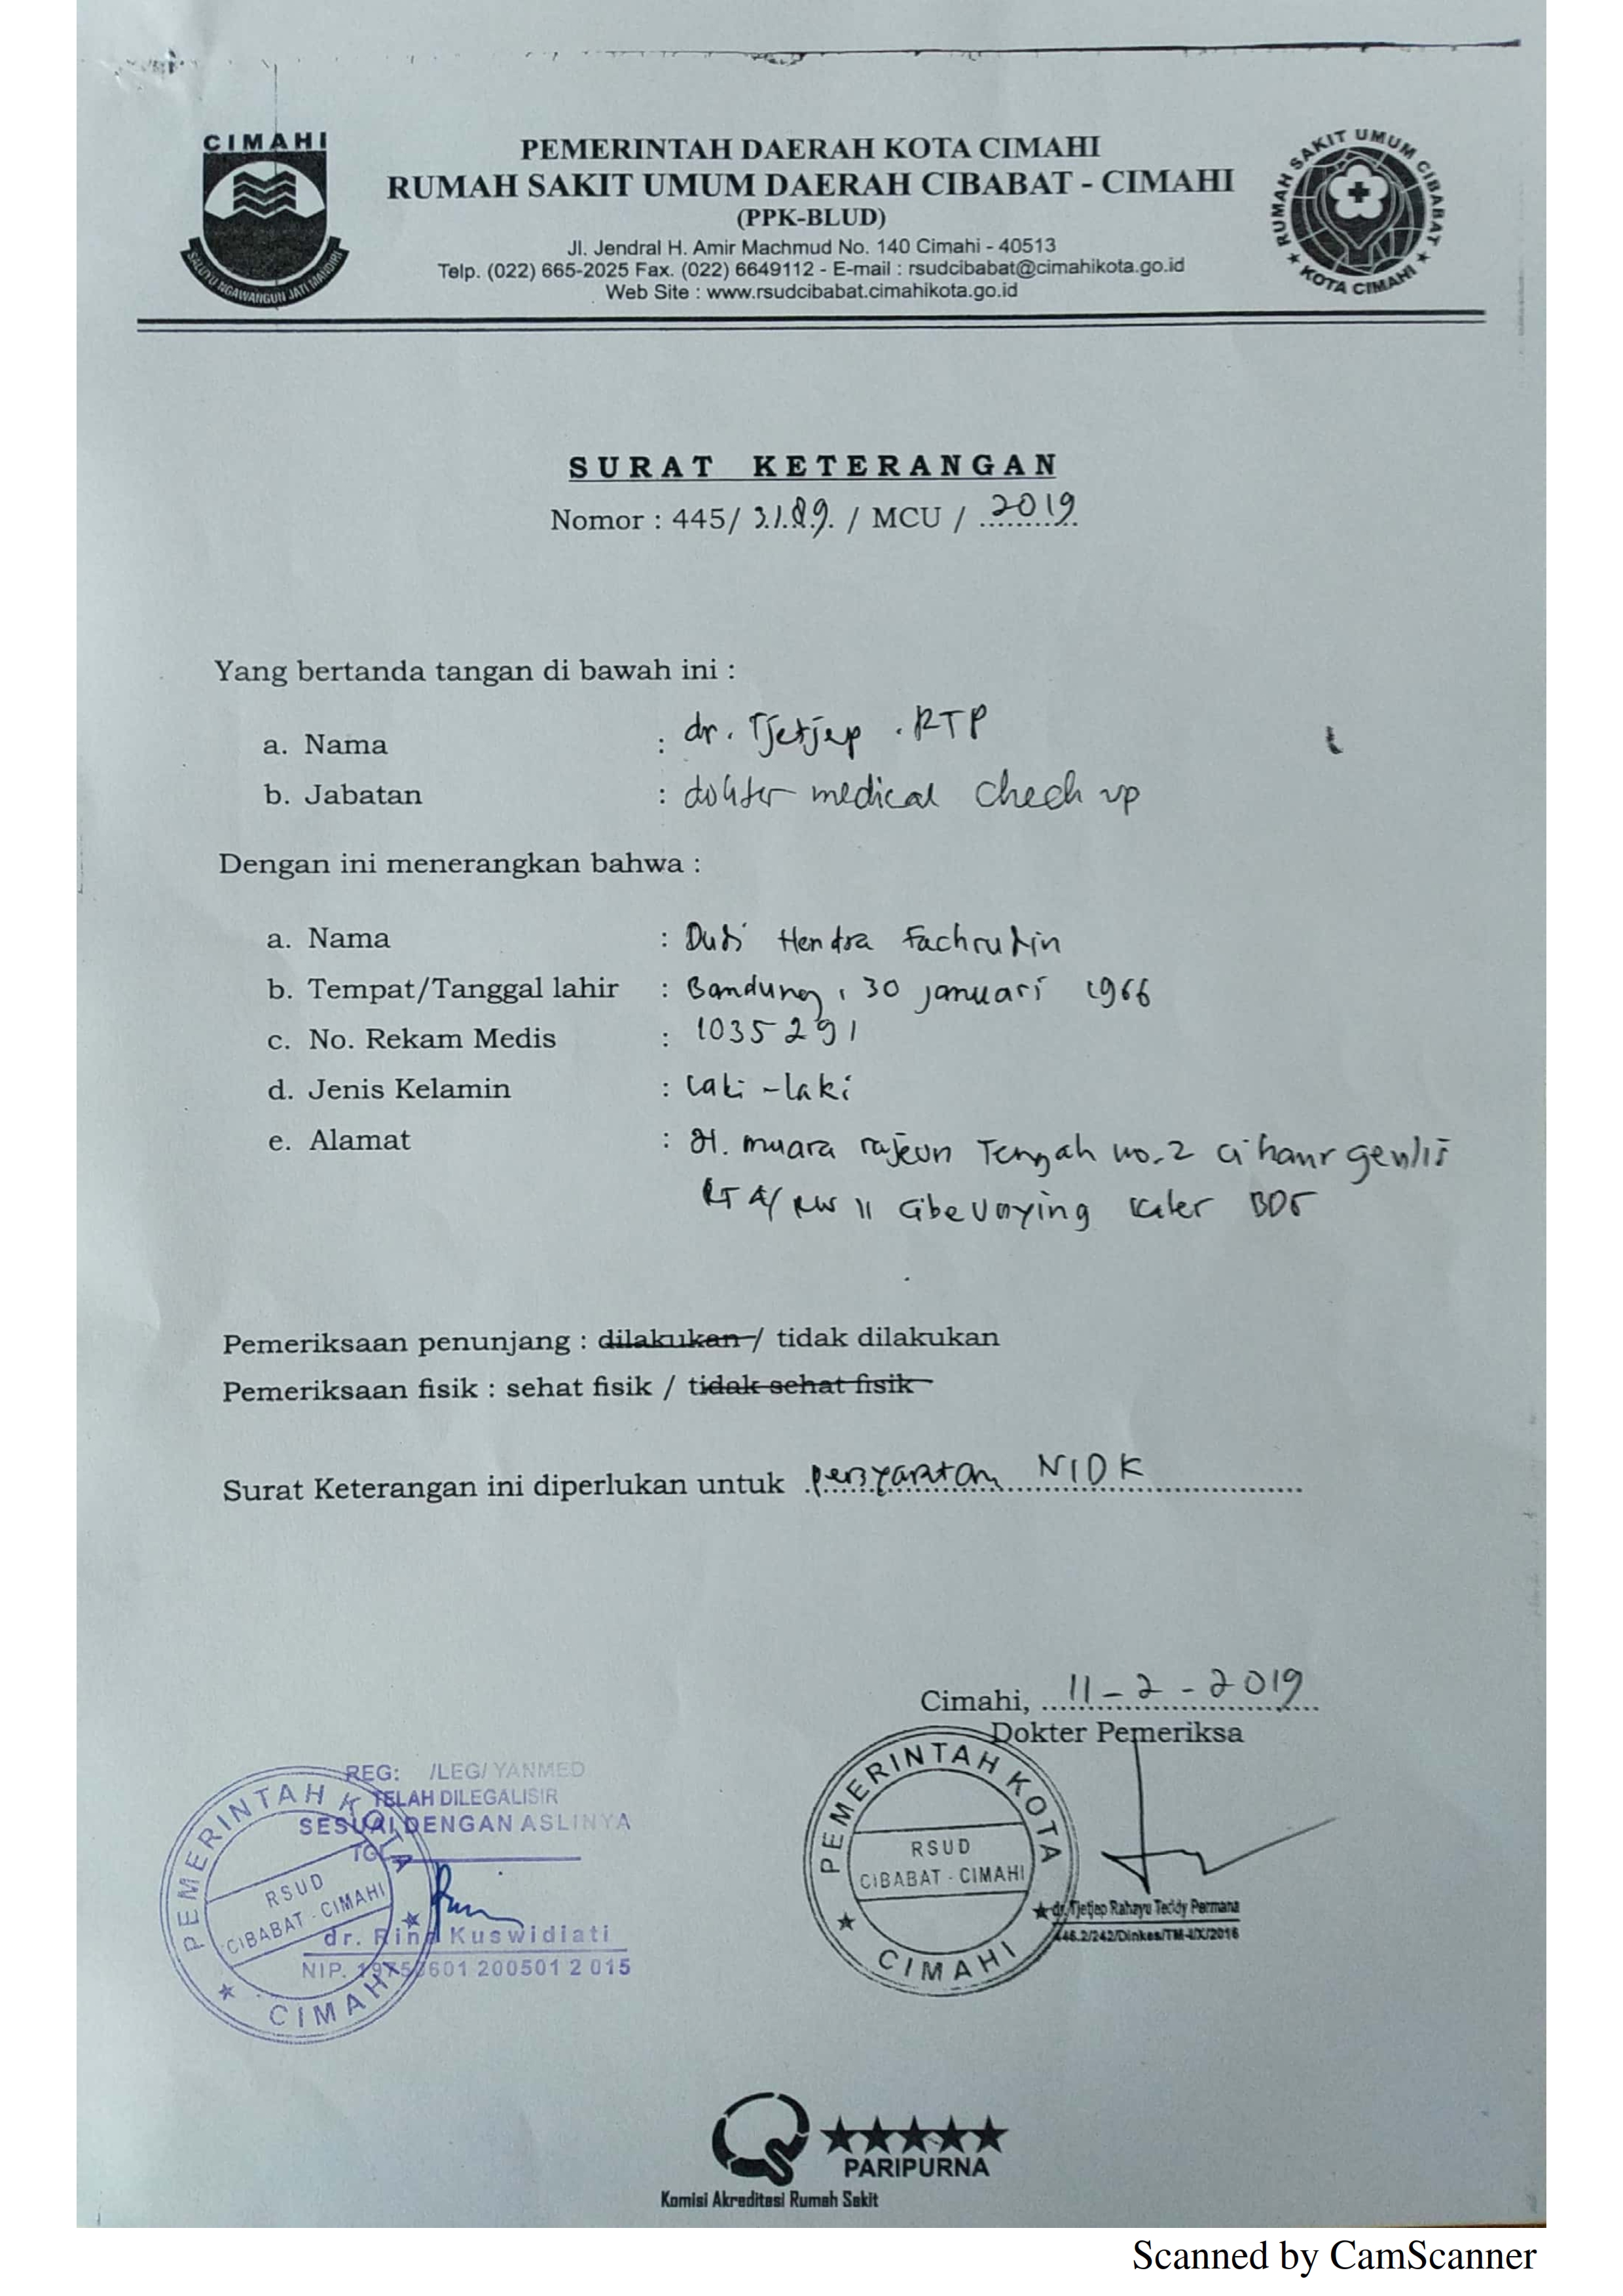 CIMAHI
SALUYU NGAWANGUN JATI MANDIRI
PEMERINTAH DAERAH KOTA CIMAHI
RUMAH SAKIT UMUM DAERAH CIBABAT - CIMAHI
(PPK-BLUD)
Jl. Jendral H. Amir Machmud No. 140 Cimahi - 40513
Telp. (022) 665-2025 Fax. (022) 6649112 - E-mail : rsudcibabat@cimahikota.go.id
Web Site : www.rsudcibabat.cimahikota.go.id
RUMAH SAKIT UMUM CIBABAT
KOTA CIMAHI
SURAT KETERANGAN
Nomor : 445/ 3189 / MCU / 2019
Yang bertanda tangan di bawah ini :
a. Nama : dr. Tjetjep . RTP
b. Jabatan : dokter medical check up
Dengan ini menerangkan bahwa :
a. Nama : Dudi Hendra Fachrudin
b. Tempat/Tanggal lahir : Bandung, 30 januari 1966
c. No. Rekam Medis : 1035291
d. Jenis Kelamin : Laki-laki
e. Alamat : Jl. muara rajeun Tengah no.2 cihaur geulis
RT 4/ RW 11 Cibeunying Kaler BDG
Pemeriksaan penunjang : dilakukan / tidak dilakukan
Pemeriksaan fisik : sehat fisik / tidak sehat fisik
Surat Keterangan ini diperlukan untuk persyaratan NIDK
Cimahi, 11-2-2019
Dokter Pemeriksa
PEMERINTAH KOTA
RSUD
CIBABAT - CIMAHI
CIMAHI
dr. Tjetjep Rahayu Teddy Permana
446.2/242/Dinkes/TM-I/X/2016
REG: /LEG/ YANMED
TELAH DILEGALISIR
SESUAI DENGAN ASLINYA
TGL
PEMERINTAH KOTA
RSUD
CIBABAT - CIMAHI
CIMAHI
dr. Rina Kuswidiati
NIP. 601 200501 2 015
PARIPURNA
Komisi Akreditasi Rumah Sakit
Scanned by CamScanner